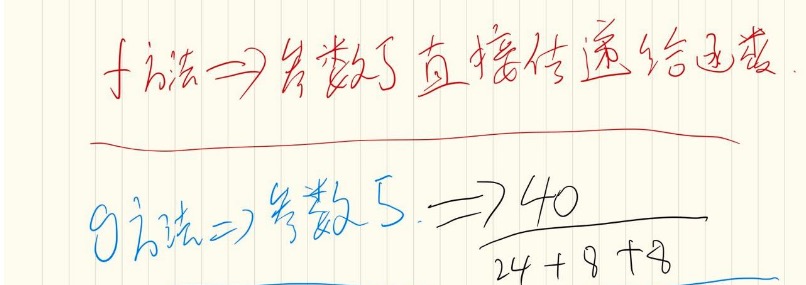 f方法=>参数5直接传递给函数.
g方法=>参数5.=>40
24+8+8